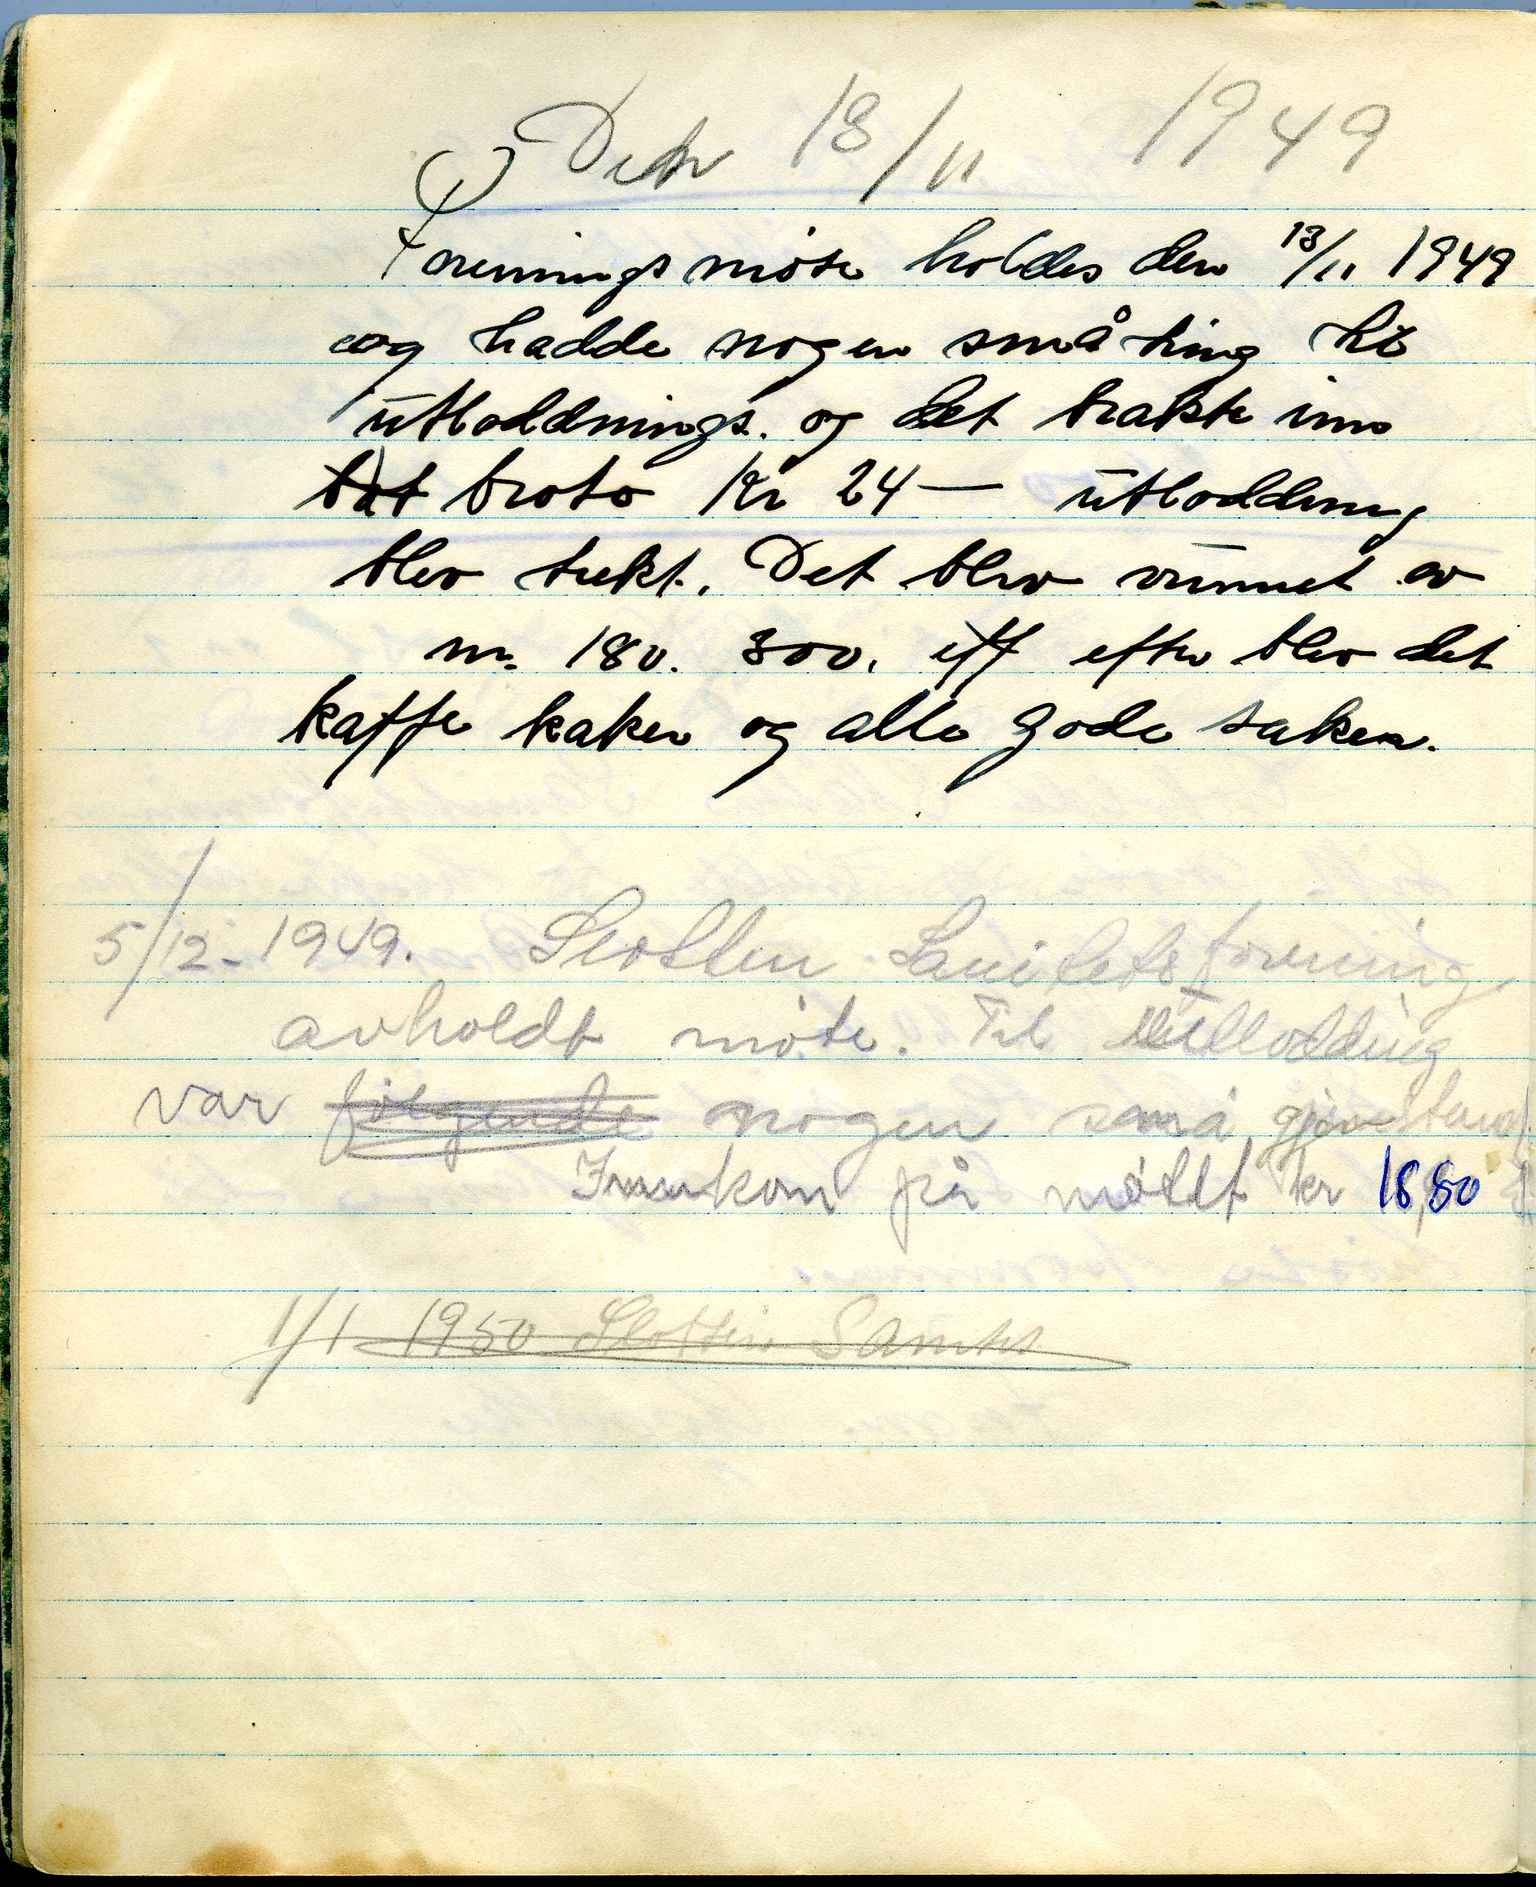 Den 13/11 1949
Forenings møte holdes den 13/11 1949
og hadde nogen små ting til
utlodnings. og det trakte inn
brutto Kr 24— utlodding
blev trekt. Det blev vunnet av
nr. 180. 300. eff efter blev det
kaffe kaker og alle gode saker.
5/12-1949. Slotten Sanitetsforening
avholdt møte. Til Utlodding
var følgende nogen små gjenstand
Innkom på møtet kr 18,80
1/1 1950 Slotten Sanitet